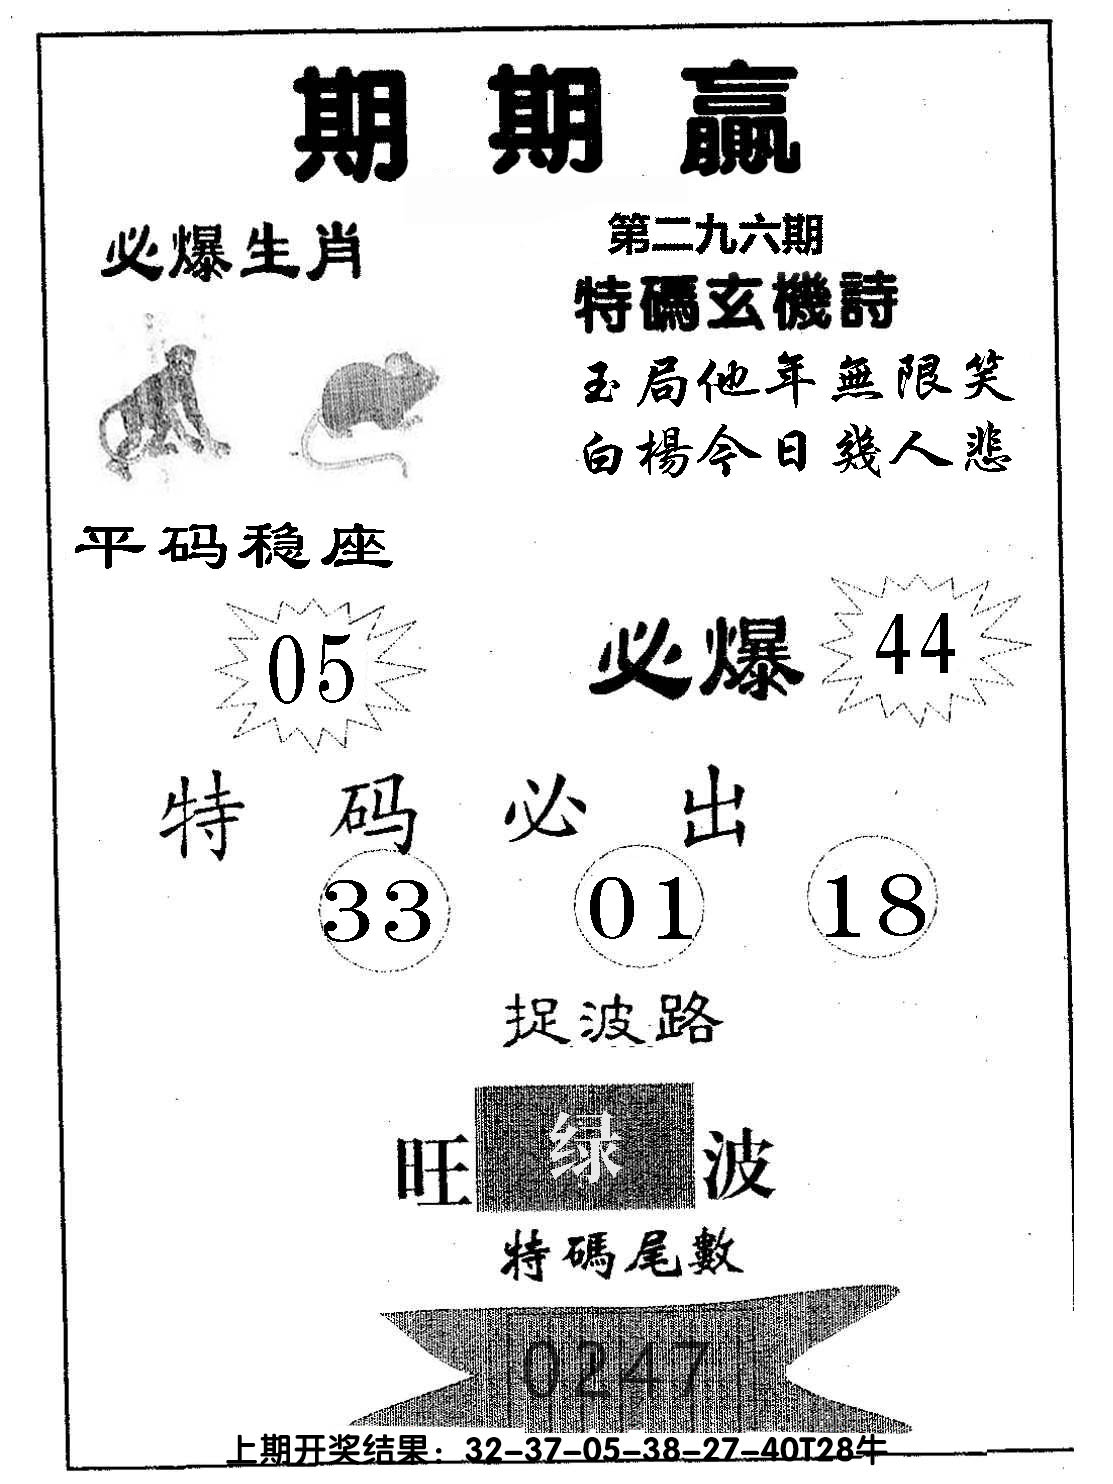 期期赢
必爆生肖
第二九六期
特碼玄機詩
玉局他年無限笑
白楊今日幾人悲
平码稳座
05
必爆 44
特码必出
33 01 18
捉波路
旺 绿 波
特碼尾數
0247
上期开奖结果：32-37-05-38-27-40T28牛